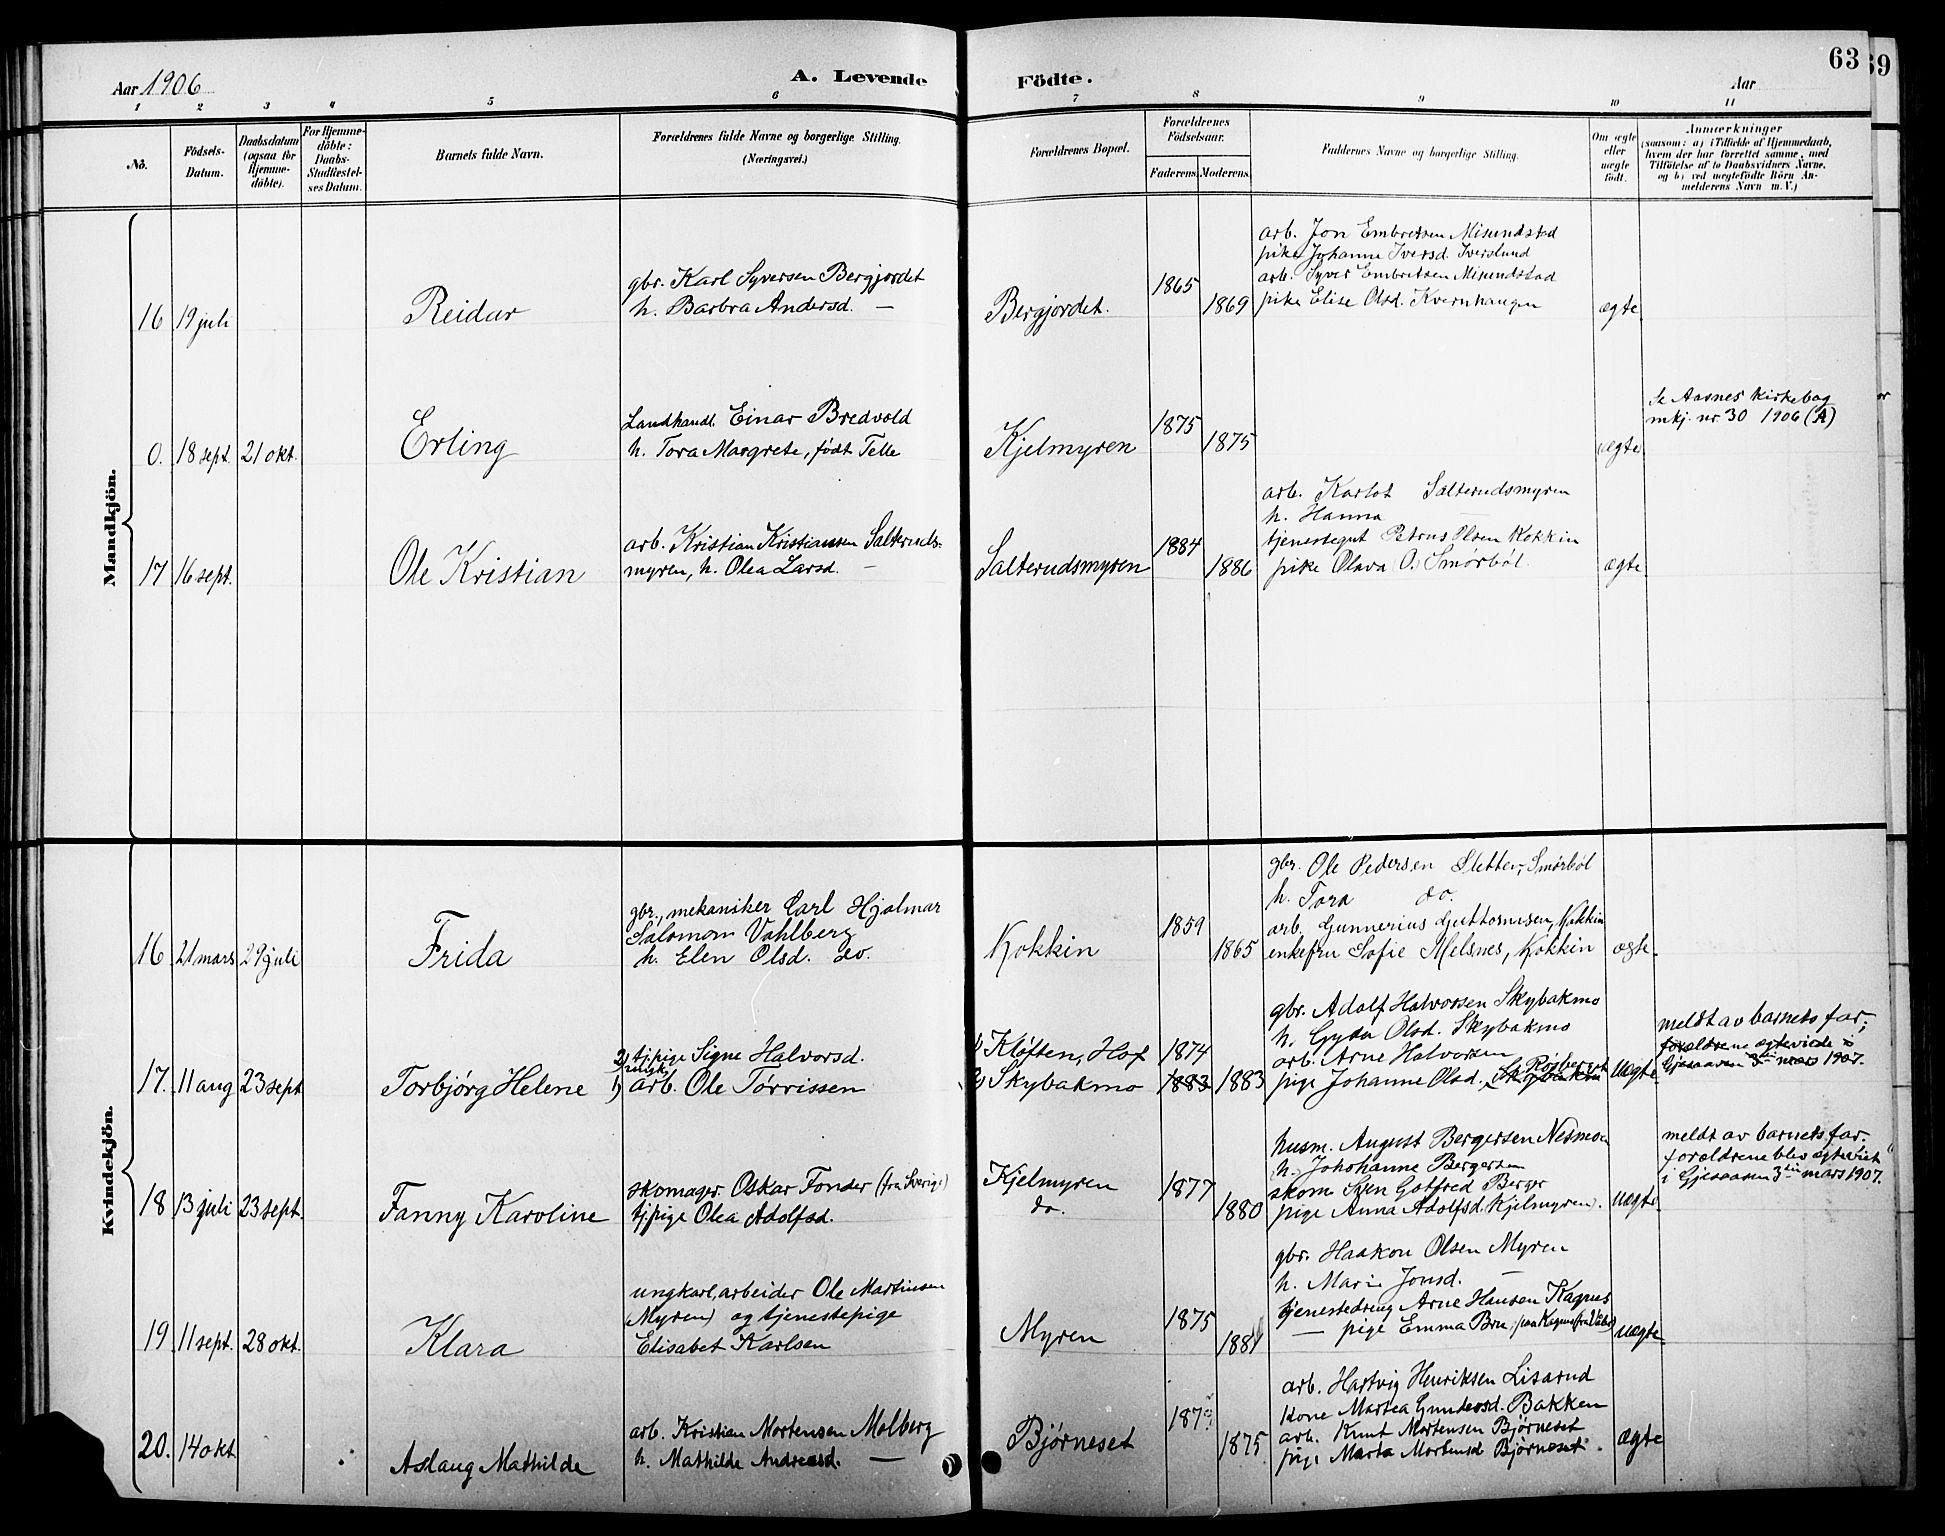 63
39
Aar 1906
A. Levende
Födte.
Aar
1 2 3 4 5 6 7 8 9 10 11
No.
Födsels-
Datum.
Daabsdatum
(ogsaa for
Hjemme-
döbte).
For Hjemme-
döbte:
Daabs-
Stadfæstel-
ses Datum.
Barnets fulde Navn.
Forældrenes fulde Navne og borgerlige Stilling.
(Næringsvei.)
Forældrenes Bopæl.
Forældrenes
Födselsaar.
Faderens. Moderens.
Faddernes Navne og borgerlige Stilling.
Om ægte
eller
uægte
födt.
Anmærkninger
(saasom: a) i Tilfælde af Hjemmedaab,
hvem der har forrettet samme, med
Tilföielse af to Daabsvidners Navne,
og b) ved uægtefödte Börn An-
melderens Navn m. V.)
Mandkjön.
16 19 juli
Reidar
gbr. Karl Syversen Bergjordet
h. Barbra Andersd. —
Bergjordet.
1865
1869
arb. Jon Embretsen Misundstad
pike Johanne Iversd. Iverslund
arb. Syver Embretsen Misundstad
pike Elise Olsd. Kvernhaugen
ægte
0. 18 sept. 21 okt.
Erling
Landhandl. Einar Bredvold
h. Tora Margrete, født Telle
Kjelmyren
1875
1875
ægte
Se Aasnes kirkebog
mkj. nr 30 1906 (A)
17 16 sept.
Ole Kristian
arb. Kristian Kristiansen Salteruds-
myren, h. Olea Larsd. —
Salterudsmyren
1884
1886
arb. Karlot Salterudsmyren
h. Hanna —
tjenestegut Petrus Olsen Kokkin
pike Olava (O.) Smørbøl.
ægte
Kvindekjön.
16 21 mars 29 juli
Frida
gbr., mekaniker Carl Hjalmar
Salomon Vahlberg
h. Elen Olsd. do.
Kokkin
1859
1865
gbr. Ole Pedersen Sletten, Smørbøl
h. Tora do.
arb. Gunnerius Guttormsen, Kokkin
enkefru Sofie Melsnes, Kokkin
ægte.
17. 11 aug 23 sept
Torbjørg Helene
2) tj.pige Signe Halvorsd.
ungk.
1) arb. Ole Tørrissen
1) Kløften, Hof
2) Skybakmo
1874
1883
1883
gbr. Adolf Halvorsen Skybakmo
h. Gyda Olsd. Skybakmo
arb. Arne Halvorsen
pige Johanne Olsd.
uægte
meldt av barnets far;
forældrene egteviede i
Gjesaasen 3die mars 1907.
18 13 juli 23 sept.
Fanny Karoline
skomager Oskar Fonder (fra Sverige)
tj.pige Olea Adolfsd.
Kjelmyren
do.
1877
1880
husm. August Bergersen Nesmoen
h. Johohanne Bergersen
skom Sven Gotfred Berger
pige Anna Adolfsd. Kjelmyren.
uægte
meldt av barnets far.
forældrene blev egteviet
i Gjesaasen 3die mars 1907.
19 11 sept. 28 okt.
Klara
ungkarl, arbeider Ole Martinsen
(Myren) og tjenestepige
Elisabet Karlsen
Myren
1875
1881
gbr. Haakon Olsen Myren
h. Marie Jonsd. —
tjenestedreng Arne Hansen Kagnes
— pige Emma Bru,
uægte
20. 14 okt
Aslaug Mathilde
arb. Kristian Mortensen Molberg
h. Mathilde Andreasd. —
Bjørneset
187
1875
arb. Hartvig Henriksen Lisarud
kone Martea Gundersd. Bakken
arb. Knut Mortensen Bjørneset
pige Marta Mortensd Bjørneset.
ægte